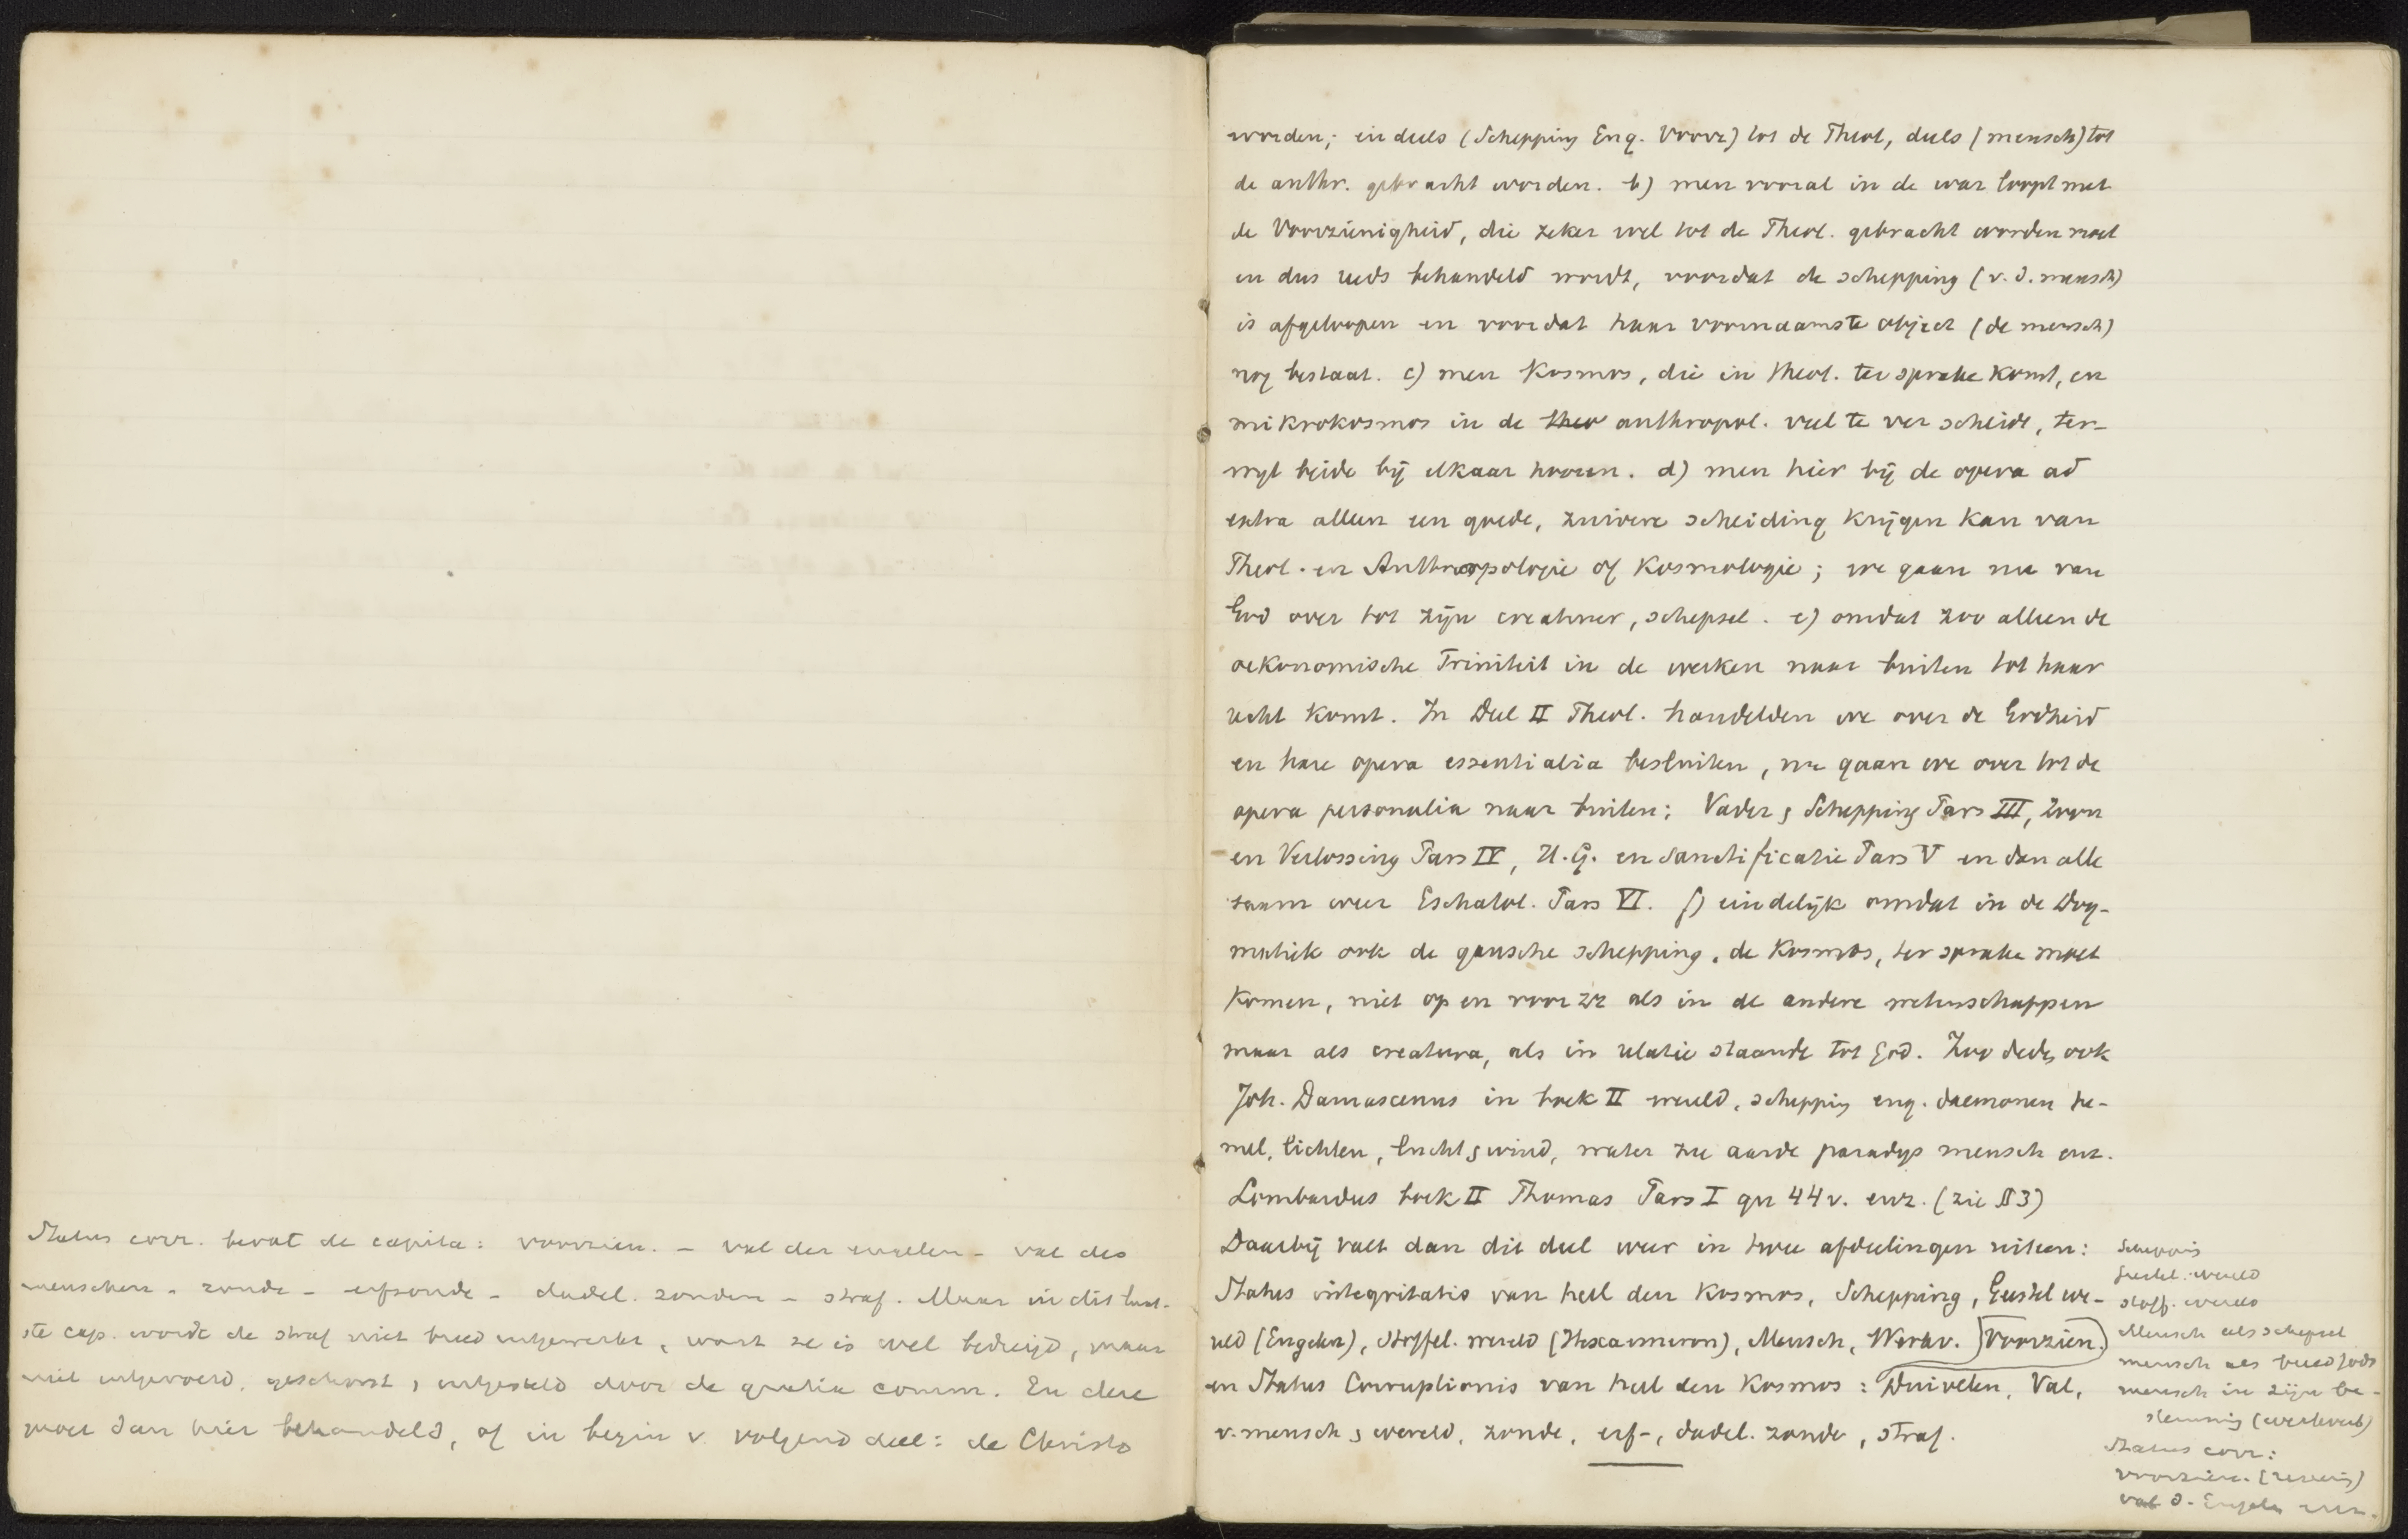 Status corr. bevat de capita: voorzien. – val der engelen – val des
menschen – zonde – erfzonde – dadel. zonden – straf. Maar in dit laat-
ste cap. wordt de straf niet breed uitgewerkt, want ze is wel bedreigd, maar
niet uitgevoerd, geschorst, uitgesteld door de gratia comm. En deze
moet dan hier behandeld, of in begin v. volgend deel: de Christo
worden; en deels (Schepping Eng. Voorz) tot de Theol, deels (mensch) tot
de anthr. gebracht worden. b) men vooral in de war loopt met
de Voorzienigheid, die zeker wel tot de Theol. gebracht worden moet
en dus reeds behandeld wordt, voordat de schepping (v. d. mensch)
is afgeloopen en voordat haar voornaamste object (de mensch)
nog bestaat. c) men Kosmos, die in theol. ter sprake komt, en
mikrokosmos in de theo anthropol. veel te ver scheidt, ter-
wyl beide bij elkaar hooren. d) men hier bij de opera ad
extra alleen een goede, zuivere scheiding krijgen kan van
Theol. en Anthropologie of Kosmologie; we gaan nu van
God over tot zijn creatuur, schepsel. e) omdat zoo alleen de
oekonomische Triniteit in de werken naar buiten tot haar
recht komt. In Deel II Theol. handelden we over de Godheid
en hare opera essentialia besluiten, nu gaan we over tot de
opera personalia naar buiten: Vader & Schepping Pars III, Zoon
en Verlossing Pars IV, H.G. en Sanctificatie Pars V en dan alle
saam weer Eschatol. Pars VI. f) eindelijk omdat in de Dog-
matiek ook de gansche schepping, de Kosmos, ter sprake moet
komen, niet op en voor zr als in de andere wetenschappen
maar als creatura, als in relatie staande tot God. Zoo deden ook
Joh. Damascenus in boek II wereld, schepping eng. daemonen he-
mel, lichten, lucht & wind, water zee aarde paradys mensch enz.
Lombardus boek II Thomas Pars I qu 44 v. enz. (zie § 3)
Daarbij valt dan dit deel weer in twee afdeelingen uiteen:
Status integritatis van heel den Kosmos, Schepping, Geestel we-
reld (Engelen), Stoffel. wereld (Hexaemeron), Mensch, Werkv. Voorzien.
en Status Corruptionis van heel den Kosmos: Duivelen, Val,
v. mensch & wereld, zonde, erf-, dadel. zonde, straf.
Schepping
Geestel. wereld
stoff. wereld
Mensch als schepsel
mensch als beeld Gods
mensch in zijn be-
stemming (werkverb)
Status corr:
voorzien.
val d. Engelen enz.